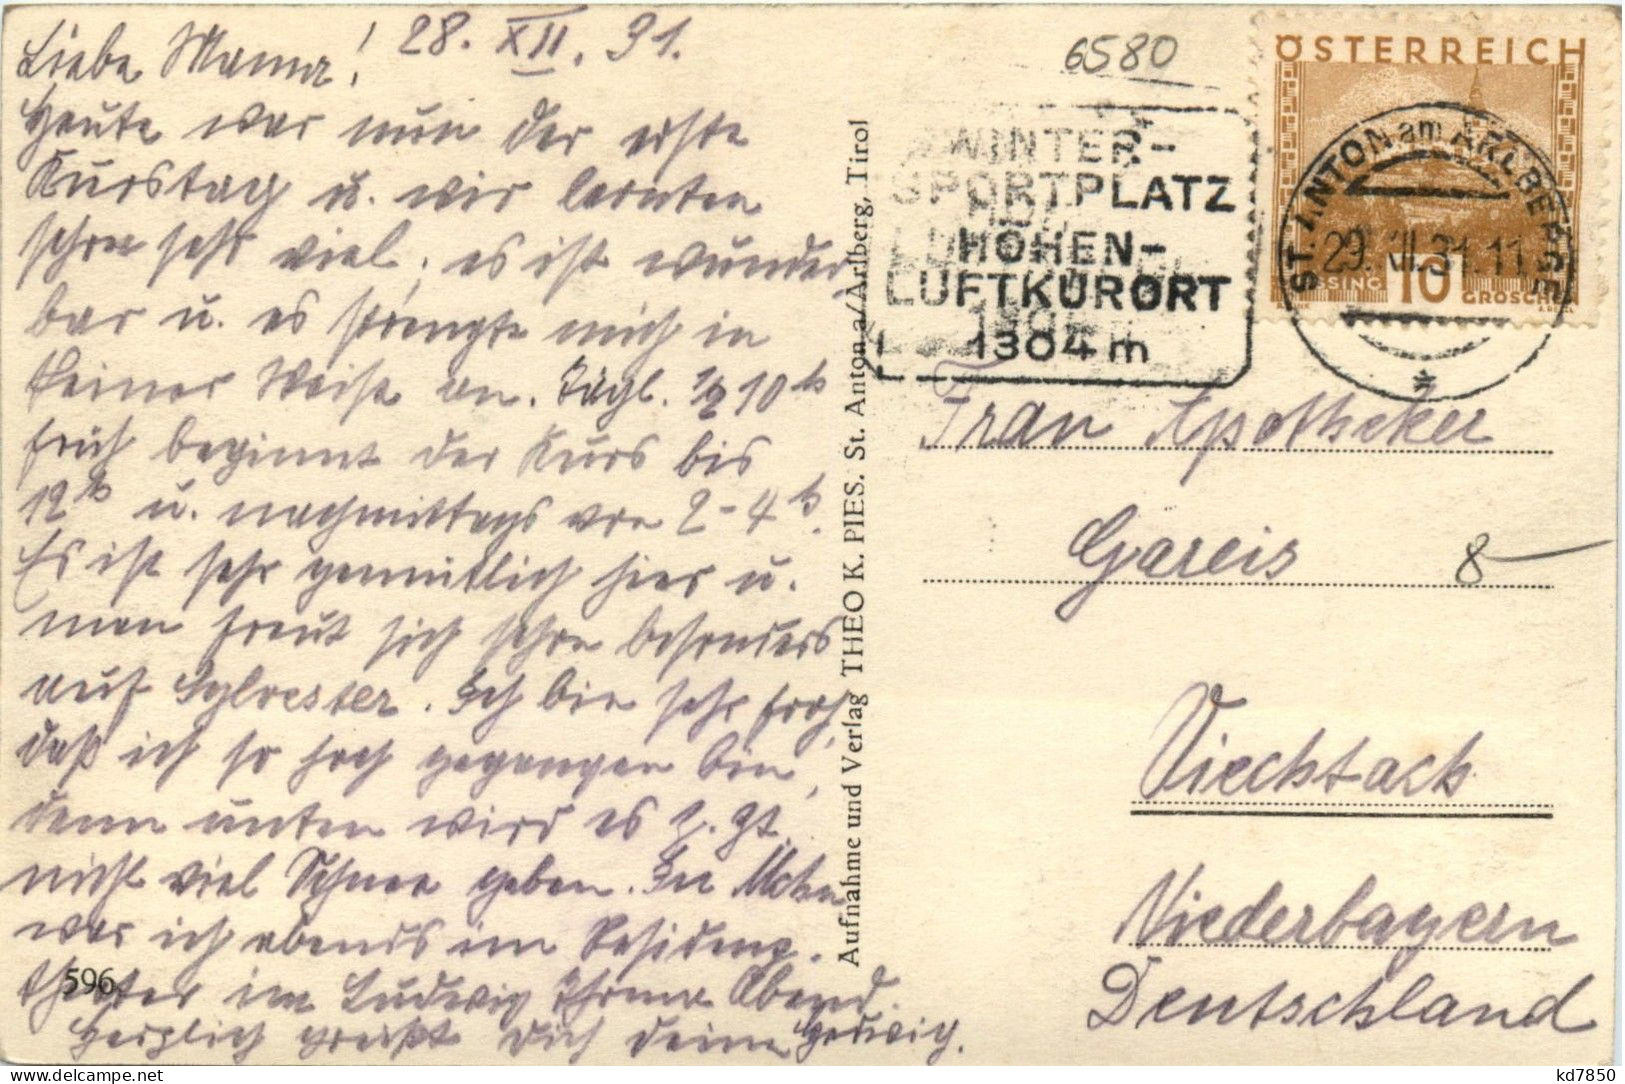 Liebe Mama! 28. XII. 31.
Heute war nun der erste
Kurstag u. wir lernten
schon sehr viel; es ist wunder
bar u. es strengte mich in
keiner Weise an. Tägl. 1/2 10 h
früh beginnt der Kurs bis
12 h u. nachmittags von 2-4 h.
Es ist sehr gemütlich hier u.
man freut sich schon besonders
auf Sylvester. Ich bin sehr froh,
daß ich so hoch gegangen bin,
denn unten wird es z. Zt.
nicht viel Schnee geben. In Mchn
war ich abends im Residenz-
theater im Ludwig Thoma Abend.
Herzlich grüßt Dich deine Hedwig.
596
Aufnahme und Verlag THEO K. PIES. St. Anton a/Arlberg, Tirol
6580
WINTER-
SPORTPLATZ
HÖHEN-
LUFTKURORT
1304 m
ÖSTERREICH
ST. ANTON am ARLBERGE
29. XII. 31. 11
10 GROSCHEN
Frau Apotheker
Gareis
8
Viechtach
Niederbayern
Deutschland
kd7850